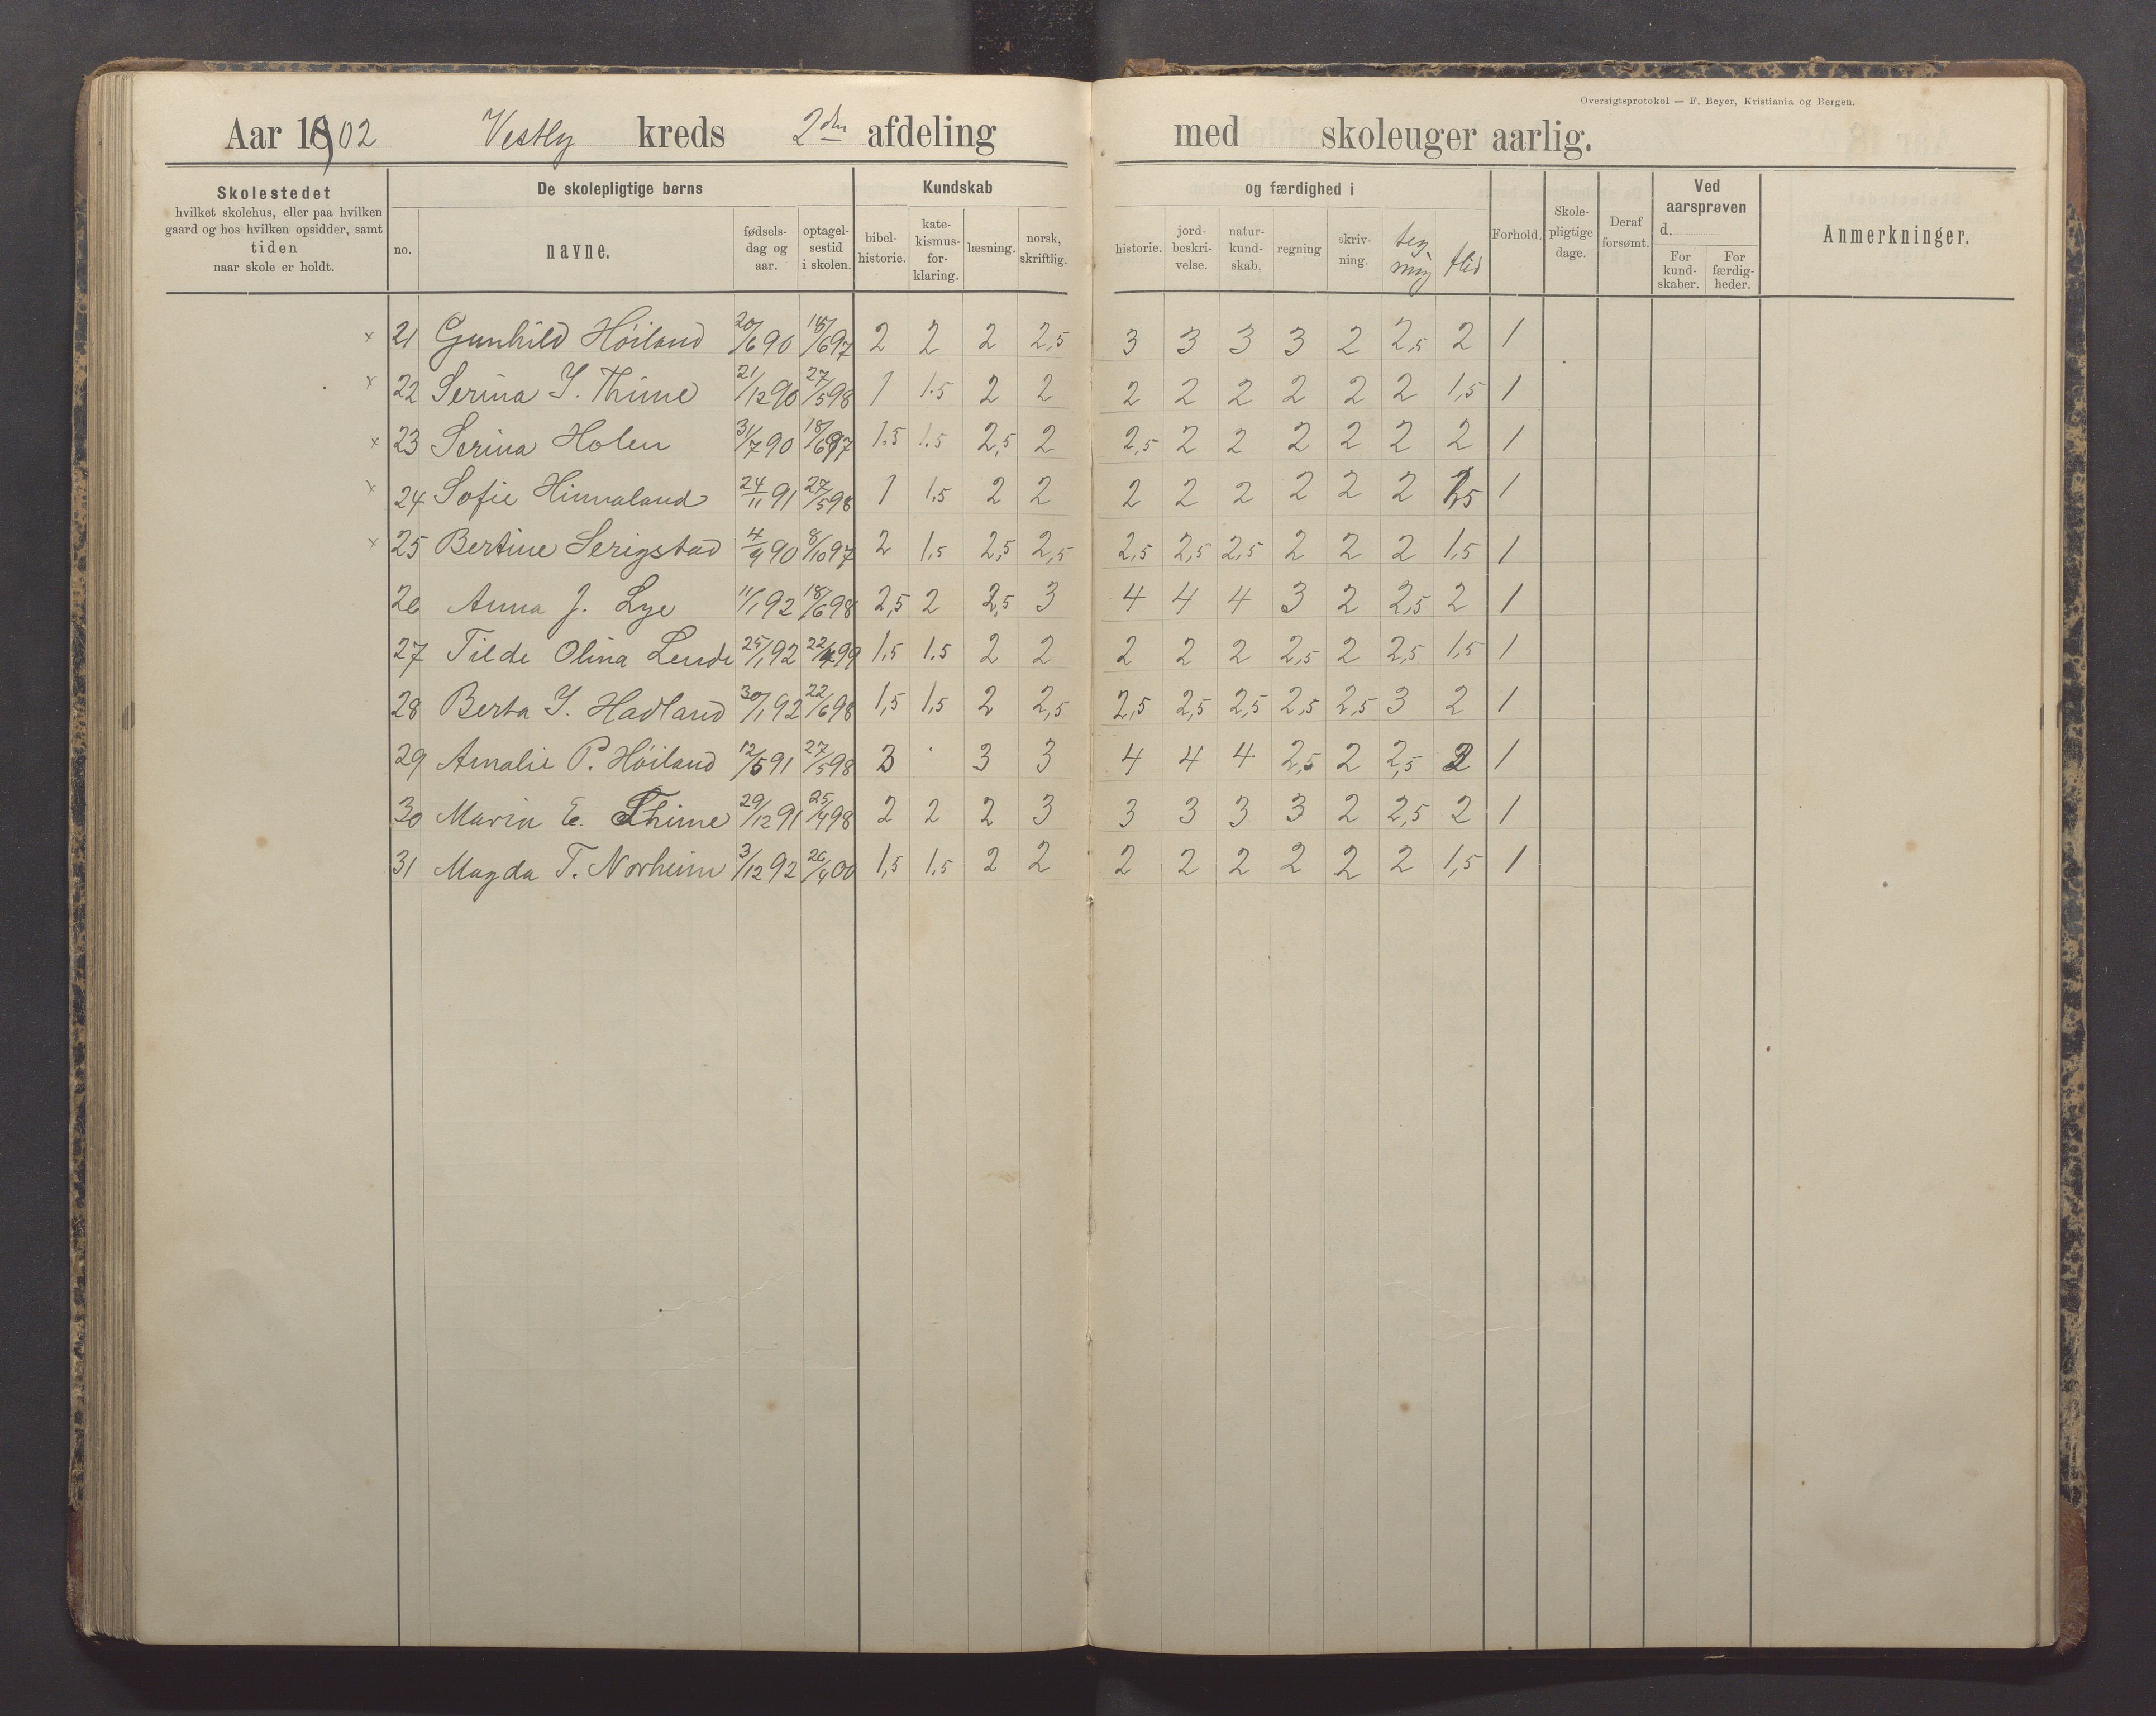 Oversigtsprotokol — F. Beyer, Kristiania og Bergen.
Aar 1902 Vestly kreds 2den afdeling med skoleuger aarlig.
Skolestedet hvilket skolehus, eller paa hvilken gaard og hos hvilken opsidder, samt tiden naar skole er holdt.
De skolepligtige børns
no. navne. fødsels-dag og aar. optagel-sestid i skolen.
Kundskab og færdighed i
bibel-historie. kate-kismus-for-klaring. læsning. norsk, skriftlig. historie. jord-beskri-velse. natur-kund-skab. regning skriv-ning. tegning flid
Forhold. Skole-pligtige dage. Deraf forsømt.
Ved aarsprøven d. For kund-skaber. For færdig-heder.
Anmerkninger.
× 21 Gunhild Höiland 20/6 90 18/6 97 2 2 2 2,5 3 3 3 3 2 2,5 2 1
× 22 Serina I. Thime 21/12 90 27/5 98 1 1.5 2 2 2 2 2 2 2 2 1,5 1
× 23 Serina Holen 31/7 90 18/6 97 1.5 1.5 2,5 2 2,5 2 2 2 2 2 2 1
× 24 Sofie Hinnaland 24/11 91 27/5 98 1 1.5 2 2 2 2 2 2 2 2 1,5 1
× 25 Bertine Serigstad 4/9 90 8/10 97 2 1,5 2,5 2,5 2,5 2,5 2,5 2 2 2 1,5 1
26 Anna J. Lye 11/1 92 18/6 98 2,5 2 2,5 3 4 4 4 3 2 2,5 2 1
27 Tilde Olina Lende 25/1 92 22/4 99 1,5 1.5 2 2 2 2 2 2,5 2 2,5 1,5 1
28 Berta I. Hadland 30/1 92 22/6 98 1,5 1,5 2 2,5 2,5 2,5 2,5 2,5 2,5 3 2 1
29 Amalie P. Höiland 12/5 91 27/5 98 3 3 3 4 4 4 2,5 2 2,5 2 1
30 Marin E. Thime 29/12 91 25/4 98 2 2 2 3 3 3 3 3 2 2,5 2 1
31 Magda T. Norheim 3/12 92 26/4 00 1,5 1,5 2 2 2 2 2 2 2 2 1,5 1